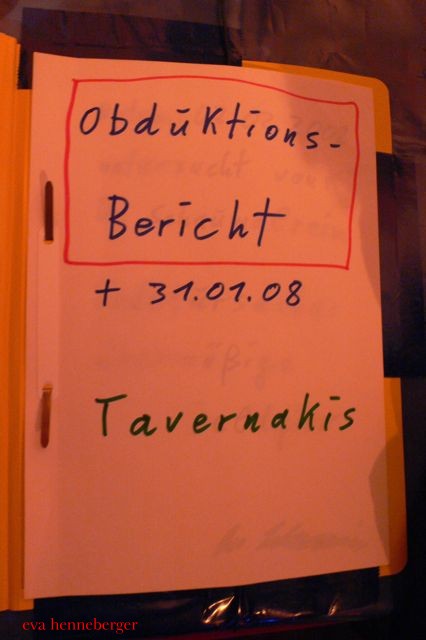 Obdūktions-
Bericht
+ 31.01.08
Tavernakis
eva henneberger